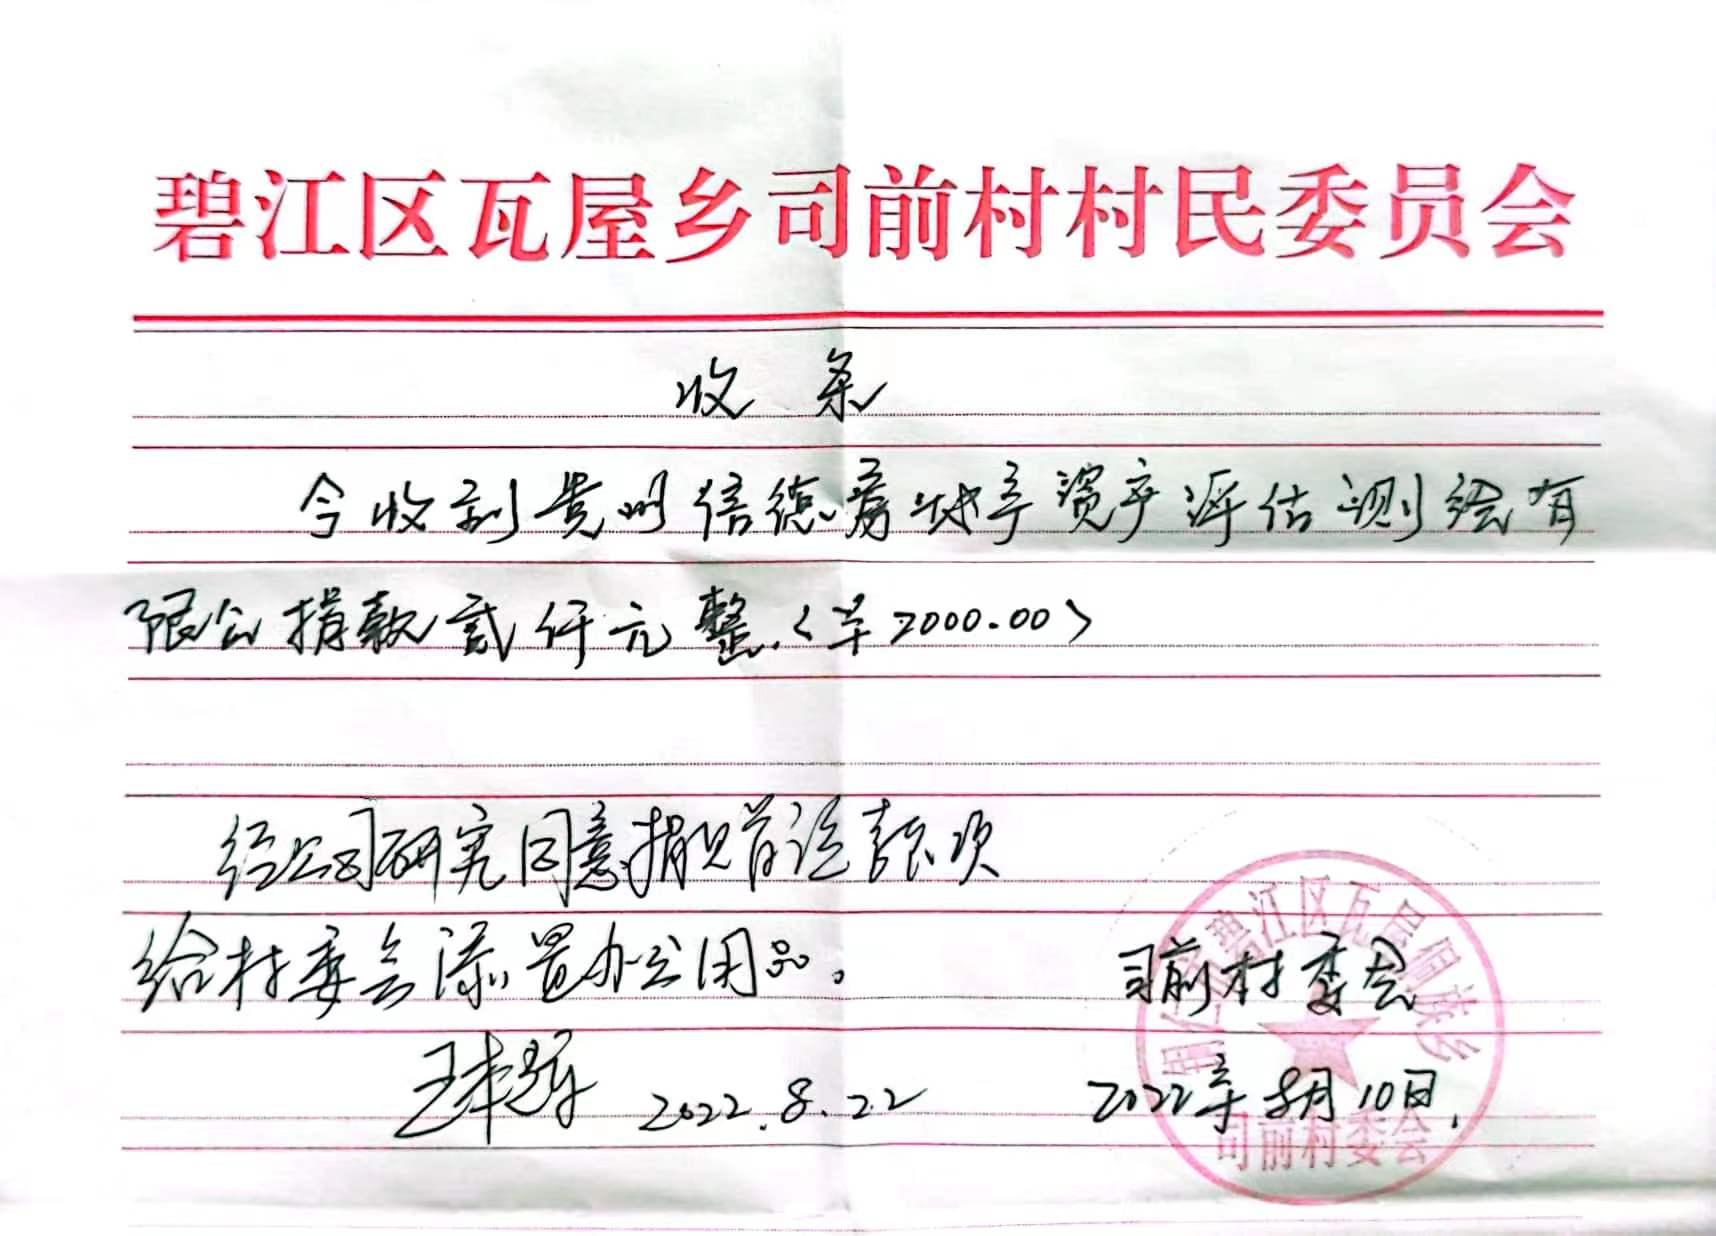 碧江区瓦屋乡司前村村民委员会
收条
今收到贵州信德房地产资产评估测绘有
限公捐款贰仟元整.(￥2000.00)
经公司研究同意捐赠首这款项
给村委会添置办公用品。
司前村委会
2022.8.22
2022年8月10日.
铜仁市碧江区瓦屋侗族乡
司前村委会